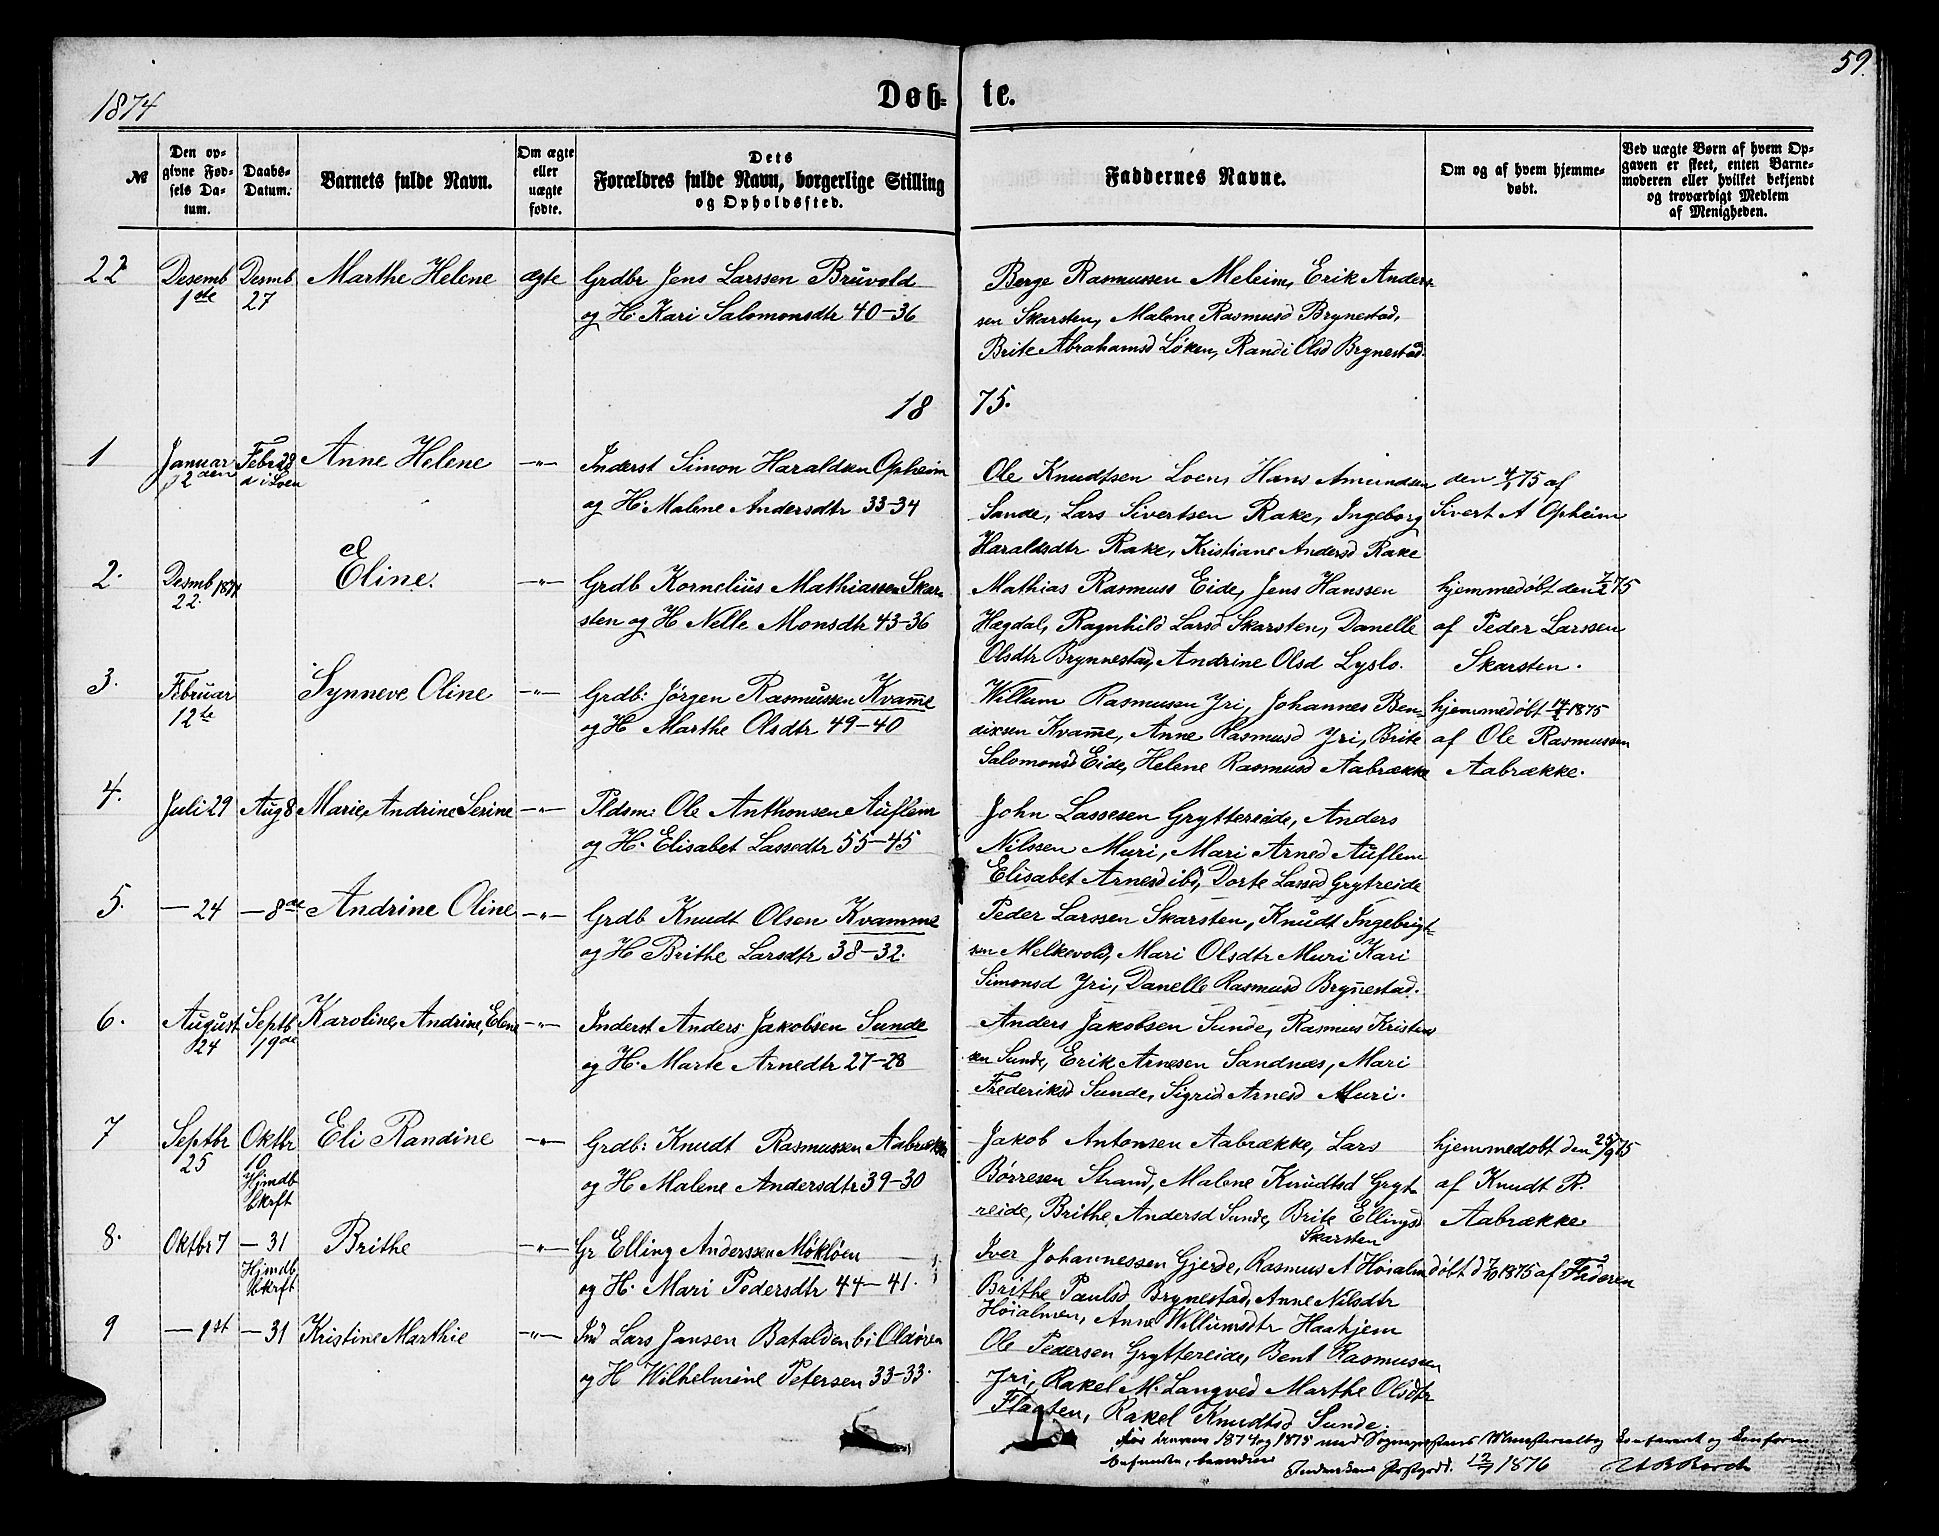 1874
Døb-
te.
59.
№
Den op-
givne Fød-
sels Da-
tum.
Daabs-
Datum.
Barnets fulde Navn.
Om ægte
eller
uægte
fødte.
Dets
Forældres fulde Navn, borgerlige Stilling
og Opholdssted.
Faddernes Navne.
Om og af hvem hjemme-
døbt.
Ved uægte Børn af hvem Op-
gaven er skeet, enten Barne-
moderen eller hvilket bekjendt
og troværdigt Medlem
af Menigheden.
22
Desemb
1ste
Desmb
27
Marthe Helene
ægte
Grdbr Jens Larssen Bruvold
og H: Kari Salomonsdtr 40-36
Berge Rasmussen Meleim, Erik Anders-
sen Skarsten, Malene Rasmusd Brynestad,
Brite Abrahamsd Løken, Randi Olsd Brynestad.
18
75.
1
Januar
2den
Febr 28
d i Loen
Anne Helene
-"-
Inderst Simon Haraldsen Opheim
og H: Malene Andersdtr 33-34
Ole Knudtsen Loen, Hans Amundsen
Sande, Lars Sivertsen Rake, Ingeborg
Haraldsdtr Rake, Kristiane Andersd Rake
den 4/1 75 af
Sivert A Opheim
2.
Desmb 1874
22.
Eline.
-"-
Grdb Kornelius Mathiassen Skar-
sten og H Nelle Monsdtr 43-36
Mathias Rasmuss Eide, Jens Hanssen
Hægdal, Ragnhild Larsd Skarsten, Danelle
Olsdtr Brynnestad, Andrine Olsd Lyslo.
hjemmedøbt den 7/2 75
af Peder Larssen
Skarsten.
3.
Februar
12te
Synneve Oline
-"-
Grdb: Jörgen Rasmussen Kvam̅e
og H Marthe Olsdtr 49-40
Willum Rasmusen Yri, Johannes Ben-
dixsen Kvam̅e, Anne Rasmusd Yri, Brite
Salomonsd Eide, Helene Rasmusd Aabrække
hjemmedøbt 14/2 1875
af Ole Rasmussen
Aabrække.
4.
Juli 29
Aug 8
Marie, Andrine Serine
-"-
Pldsm: Ole Anthonsen Auflem
og H. Elisabet Lassedtr 55-45
John Lassesen Gryttereide, Anders
Nilssen Muri, Mari Arned Auflem
Elisabet Arnesd ibd, Dorte Lassed Grytreide
5.
- 24
- 8de
Andrine Oline
-"-
Grdb Knudt Olsen Kvamme
og H Brithe Larsdtr 38-32.
Peder Larssen Skarsten, Knudt Ingebrigt-
sen Melkevold, Mari Olsdtr Muri Kari
Simonsd Yri, Danelle Rasmusd Bryn̅estad.
6.
August
24
Septb
19de
Karoline, Andrine, Elene
-"-
Inderst Anders Jakobsen Sunde
og H. Marte Arnedtr 27-28
Anders Jakobsen Sunde, Rasmus Kristen
sen Sunde, Erik Arnesen Sandnæs, Mari
Frederiksd Sunde, Sigrid Arnesd Muri.
7
Septbr
25
Oktbr
10
Hjmdb
bkrft
Eli Randine
-"-
Grdb: Knudt Rasmussen Aabrække
og H Malene Andersdtr 39-30
Jakob Antonsen Aabrække, Lars
Børresen Strand, Malene Knudtsd Gryt-
reide, Brithe Andersd Sunde, Brite Ellingsd
Skarsten
hjemmedøbt den 25/9 75
af Knudt R.
Aabrække
8.
Oktbr 7
- 31
Hjmdb
bkrft
Brithe
-"-
Gr Elling Anderssen Mökløen
og H. Mari Pedersdtr 44-41.
Iver Johannessen Gjerde, Rasmus A Høialm
Brithe Paulsd Brynestad, Anne Nilsdtr
Høialmen, Anne Williumsdtr Haahjem
døbt d 7/10 1875 af Faderen
9
- 1st
- 31
Kristine Marthie
-"-
Ind Lars Jansen Batalden b: Oldören
og H Wilhelmine Petersen 33-33.
Ole Pedersen Gryttereide, Bent Rasmussen
Yri, Rakel M. Langved Marthe Olsdtr
Flaaten, Rakel Knudtsd Sunde.
1874 og 1875 med Sognepræstens Ministerialbog Confereret og Conform
befunden, bevidnes
12/7 1876